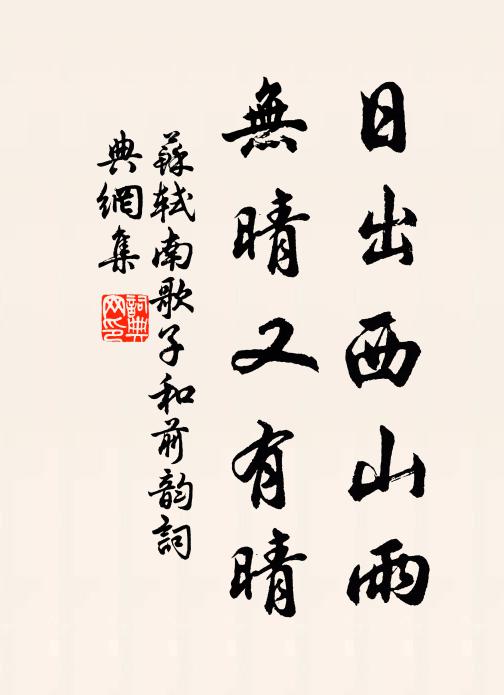 日出西山雨
無晴又有晴
蘇軾南歌子和前韵詞
典網集
詞典網印